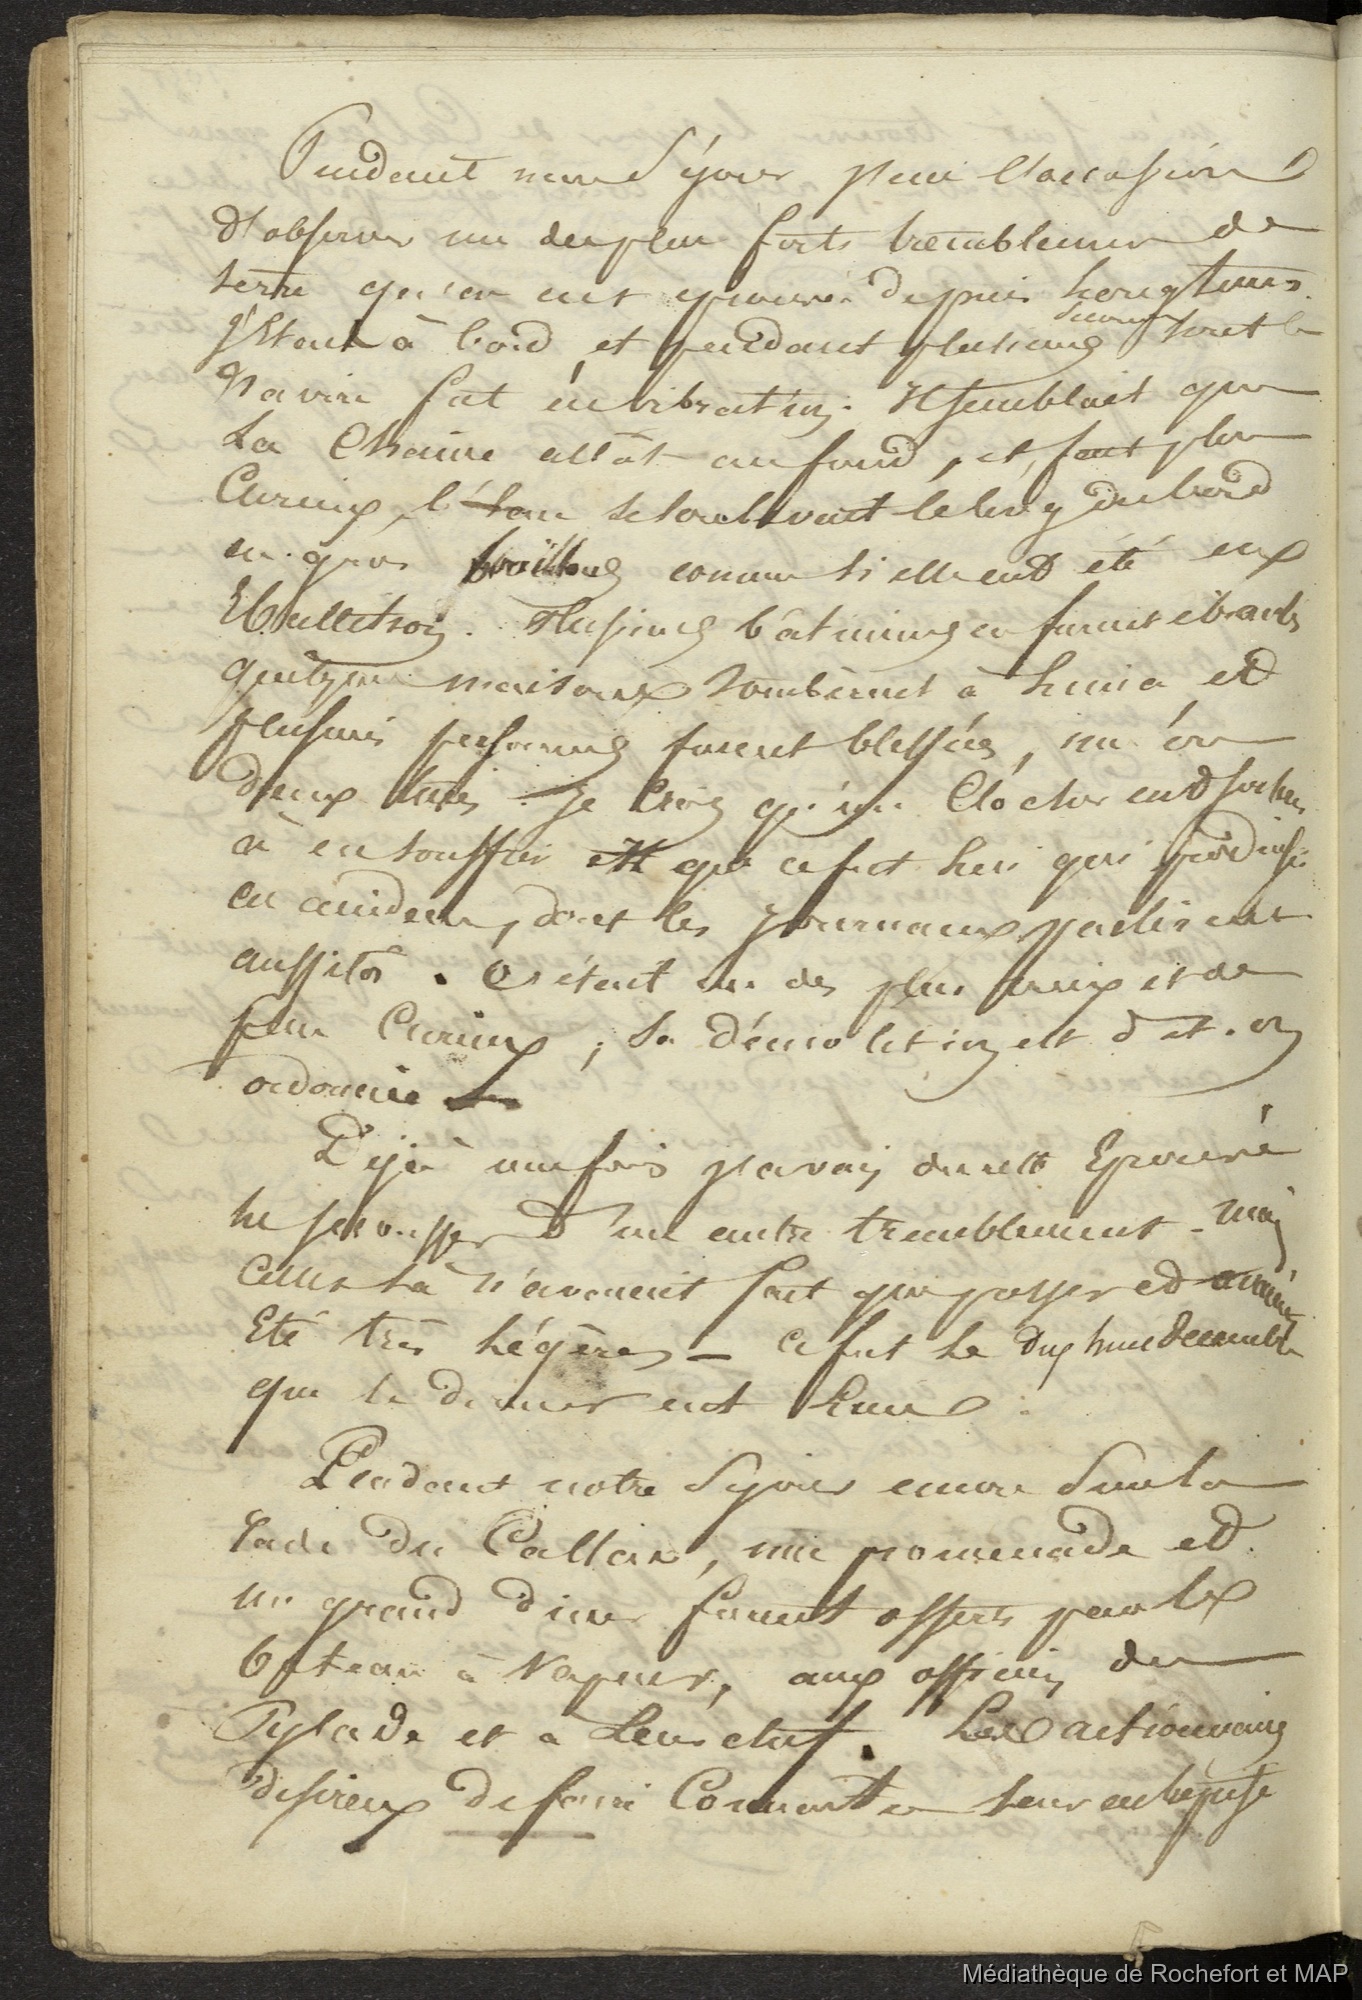 Pendant mon Séjour j'eus l'occasion
d'observer un des plus forts tremblemens de
terre qu'on eut éprouvé depuis longtems.
J'Etais à bord, et pendant plusieurs secondes tout le
Navire fut en vibration. Il semblait que
La Chaine allât au fond, et, fait plus
Curieux, l'eau se soulevait le long du bord
en gros bouillons comme si elle eut été en
Ebullition. Plusieurs bâtimens en furent ébranlés
quelques maisons tombèrent à Lima et
plusieurs personnes furent blessées, un ou
deux tués. Je crois qu'un Clocher eut fort
à en souffrir et que ce fut lui qui
ces accidens, dont les Journaux parlèrent
aussitôt. C'était un des plus vieux et des
plus Curieux ; Sa démolition est dit-on
ordonnée
Déjà une fois j'avais du reste Eprouvé
les secousses d'un autre tremblement - mais
celles là n'avaient fait que passer et avaient
Eté très légères - Ce fut le dix huit décembre
que le dernier eut Lieu.
Pendant notre Séjour encore Sur la
rade du Callao, une promenade et
un grand diner furent offerts par le
bateau à Vapeur, aux officiers du
Pylade et à Leur chef. Les actionnaires
desireux de faire Connaitre leur entreprise
Médiathèque de Rochefort et MAP